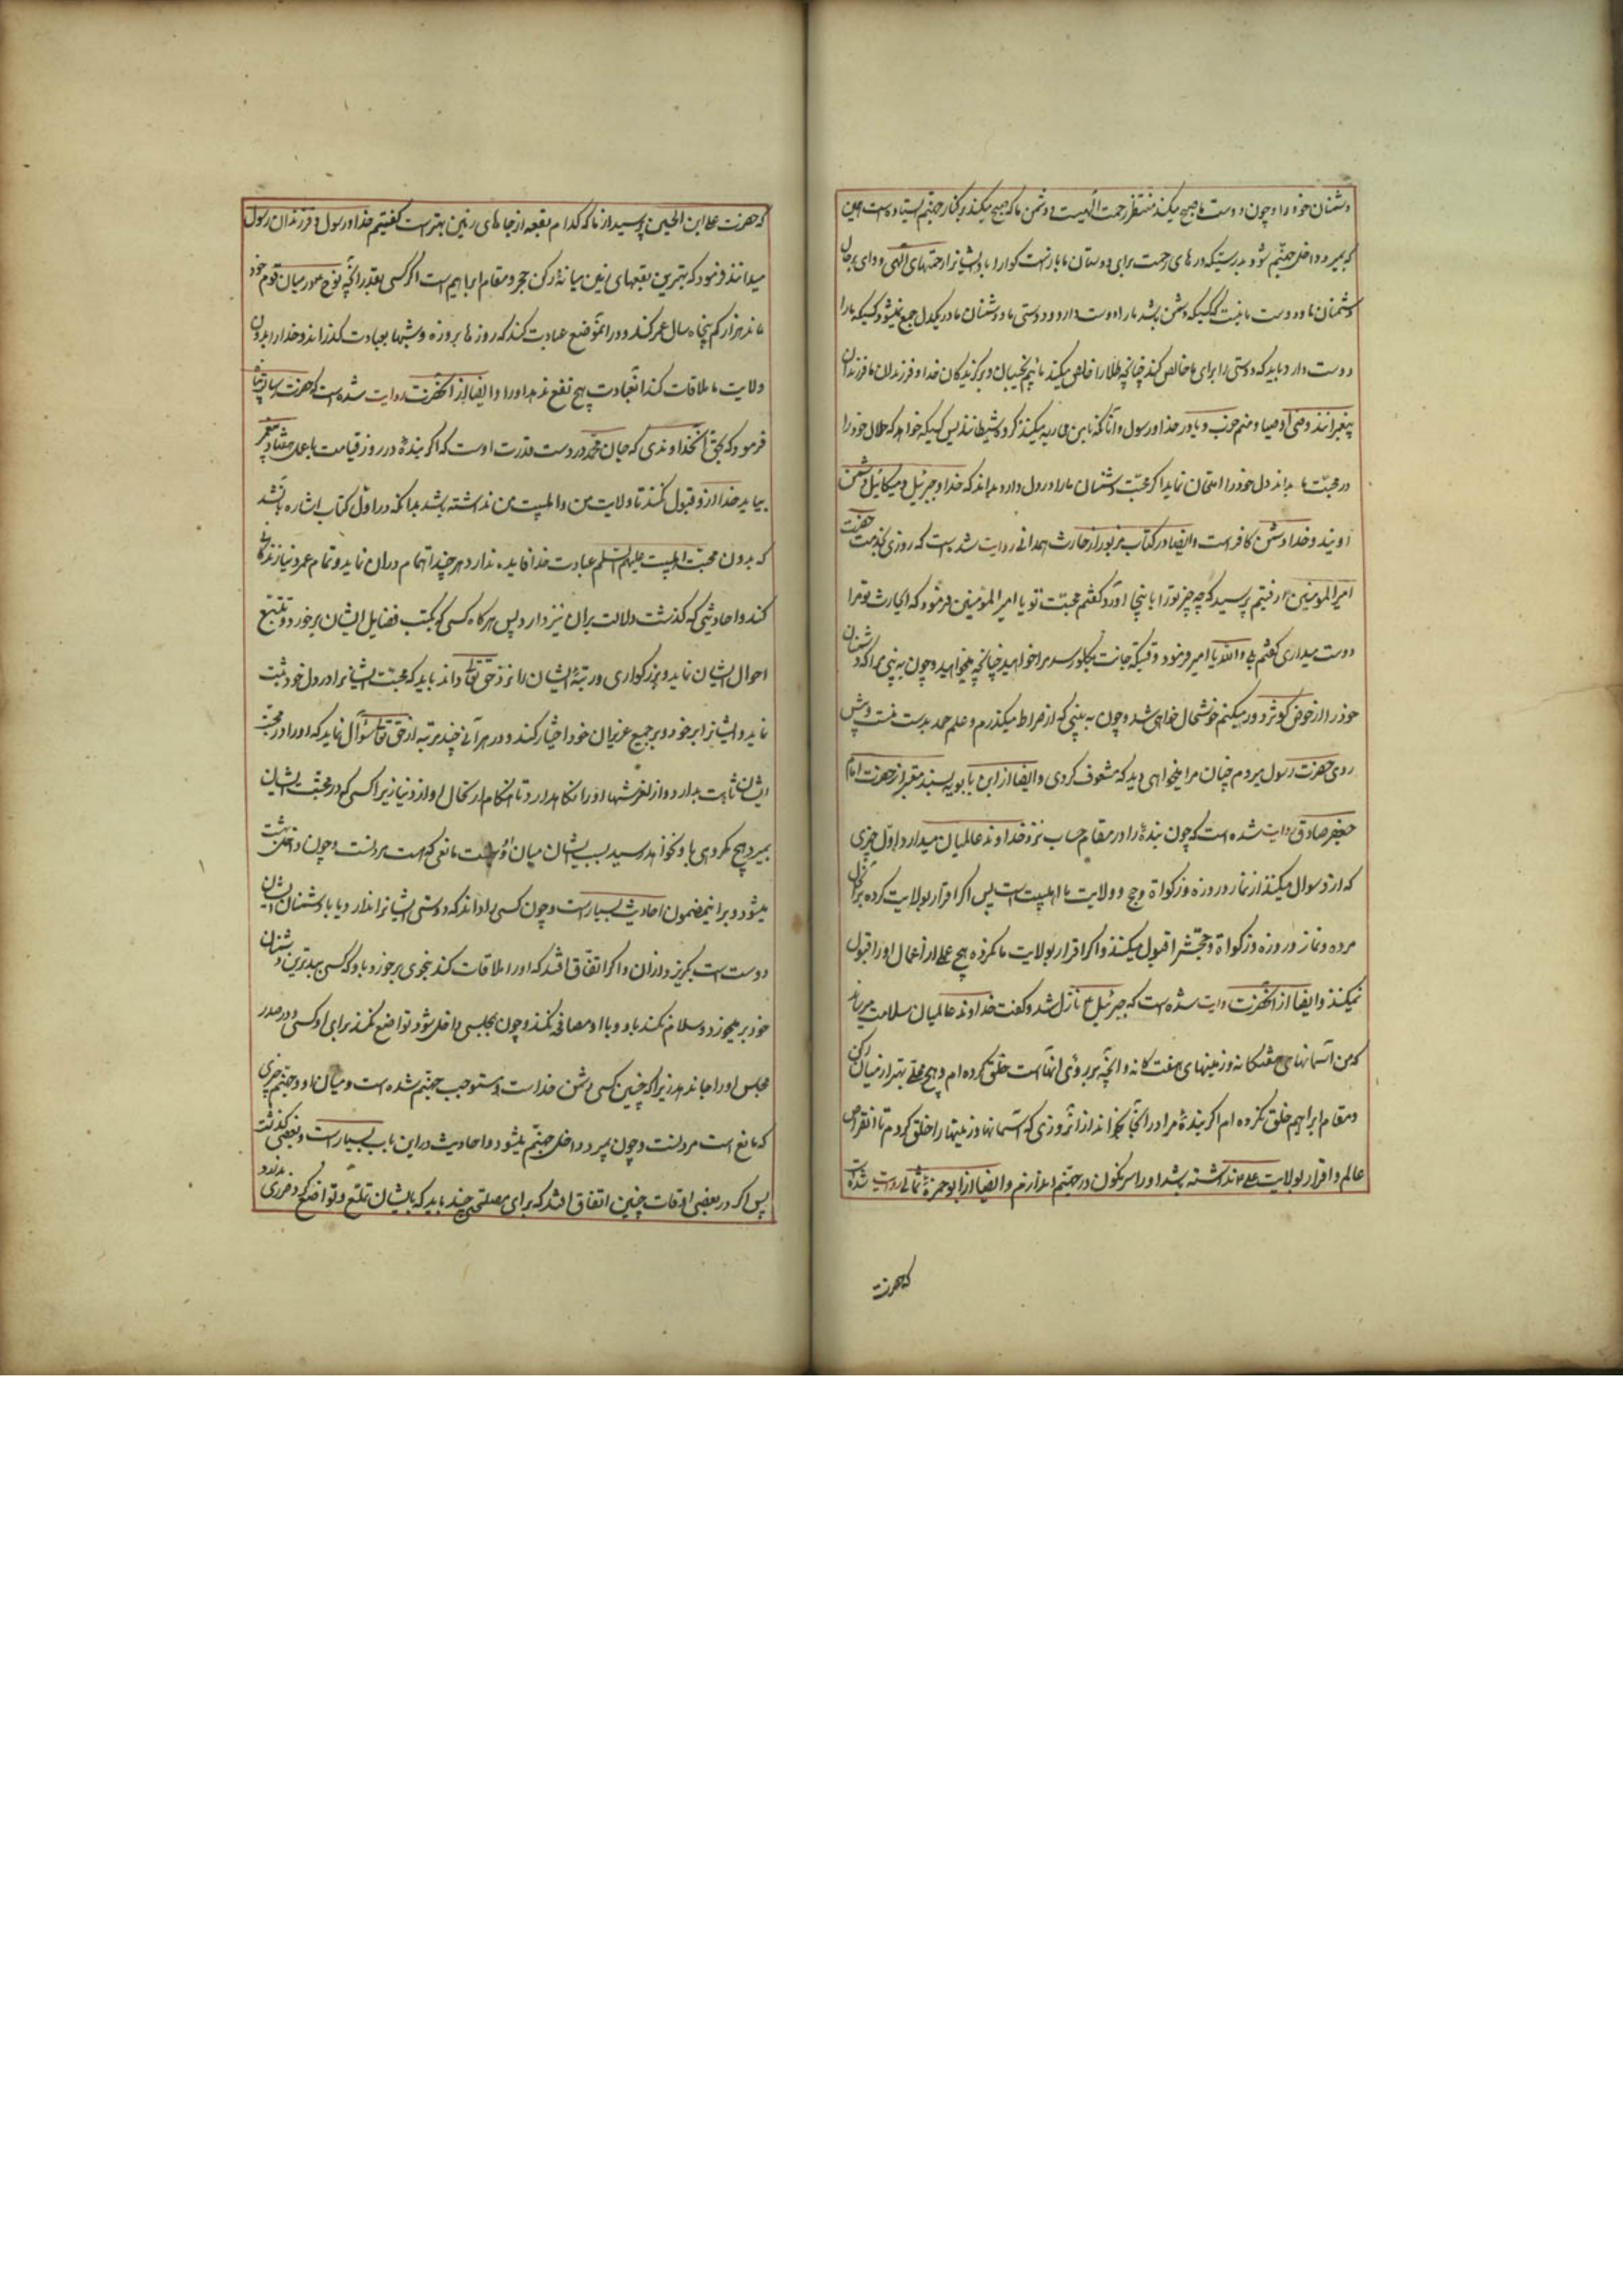 دشمنان خود را و چون دوست ما صبح میکند منتظر رحمت الهیست و دشمن ما که صبح میکند بر کنار جهنم ایستاده است همین
که بمیرد داخل جهنم شود بدرستیکه درهای رحمت برای دوستان ما باز است کوارا باد ایشانرا رحمتهای الهی و وای بر حال
دشمنان ما و دوست ما نیست کسیکه دشمن باشد ما را دوست دارد و دوستی ما و دشمنان ما در یکدل جمع نمیشود کسیکه ما را
دوست دارد باید که دوستی را برای ما خالص کند چنانچه طلا را خالص میکنند مائیم نجیبان و برکزیدکان خدا و فرزندان ما فرزندان
پیغمبرانند و منم اوصیا و منم حزب و یاور خدا و رسول و آنانکه با من محاربه میکنند کروه شیطانند پس کسیکه خواهد که حال خود را
در محبت ما بداند دل خود را امتحان نماید اکر محبت دشمنان ما را در دل دارد بداند که خدا و جبرئیل و میکائیل دشمن
اویند و خدا دشمن کافر است و ایضا در کتاب مزبور از حارث همدانی روایت شده است که روزی بخدمت حضرت
امیر المومنین ع رفتم پرسید که چه چیز تو را باینجا آورد کفتم محبت تو یا امیر المومنین فرمود که ایحارث تو مرا
دوست میداری کفتم بلی والله یا امیر فرمود وقتیکه جانت بکلو رسد مرا خواهید چنانچه میخواهید و چون به بینی مرا که دشمنان
خود را از حوض کوثر دور میکنم خوشحال خواهی شد و چون به بینی که از صراط میکذرم و علم حمد بدست منست و پیش
روی حضرت رسول میروم چنان مرا خواهی دید که مشعوف کردی و ایضا از ابن بابویه بسند معتبر از حضرت امام
جعفر صادق روایت شده است که چون بندۀ را در مقام حساب نزد خداوند عالمیان میدارد اول چیزی
که از او سوال میکنند از نماز و روزه و زکواة و حج و ولایت ما اهلبیت است پس اکر اقرار بولایت کرده بر آنحال
مرده و نماز و روزه و زکواة و حجش را قبول میکنند و اکر اقرار بولایت ما نکرده هیچ عملی از اعمال او را قبول
نمیکنند و ایضا از آنحضرت روایت شده است که جبرئیل ع نازل شد و کفت خداوند عالمیان سلامت میرساند
که من آسمانهای هفتکانه و زمینهای هفت کانه و آنچه بر روی آنهاست خلق کرده ام و هیچ محلی بهتر از میان رکن
و مقام ابراهیم خلق نکرده ام اکر بندۀ مرا در آنجا بخواند از آنروزی که آسمانها و زمینها را خلق کردم تا انقراض
عالم و اقرار بولایت علی ع نداشته باشد او را سرنکون در جهنم اندازم و ایضا از ابو حمزۀ ثمالی روایت شده است
که حضرت
که حضرت علی ابن الحسین پرسید از ما که کدام بقعه از جاهای زمین بهتر است کفتیم خدا و رسول و فرزندان رسول
میدانند فرمود که بهترین بقعهای زمین میانۀ رکن حجر و مقام ابراهیم است اکر کسی بقدر آنچه نوح ع در میان قوم خود
ماند هزار کم پنجاه سال عمر کند و در انموضع عبادت کند که روزها بروزه و شبها بعبادت کذراند و خدا را بدون
ولایت ما ملاقات کند آنعبادت هیچ نفع ندهد او را و ایضا از آنحضرت روایت شده است که حضرت رسالت پناه
فرمود که بحق آنخداوندی که جان محمد در دست قدرت اوست که اکر بندۀ در روز قیامت با عمل هفتاد پیغمبر
بیاید خدا از او قبول نکند تا ولایت من و اهلبیت من نداشته باشد بدانکه در اول کتاب اشاره باین شد
که بدون محبت اهلبیت علیهم السلم عبادت خدا فایده ندارد هر چند اهتمام در آن نماید و تمام عمر دنیا زندکانی
کند و احادیثی که کذشت دلالت بر آن نیز دارد پس هرکاه کسی که بکتب فضایل ایشان برخورد و تتبع
احوال ایشان نماید و بزرکواری و رتبۀ ایشان را نزد حق تعا داند باید که محبت ایشانرا در دل خود ثبت
نماید و ایشانرا بر خود و بر جمیع عزیزان خود اختیار کند و در هر آنی چند مرتبه از حق تعا سؤال نماید که او را در محبت
ایشان ثابت بدارد و از لغزشها او را نکاهدارد تا هنکام ارتحال او از دنیا زیرا کسی که در محبت ایشان
بمیرد هیچ مکروهی باو نخواهد رسید بسبب ایشان میان او و بهشت مانعی که هست مردنست و چون مرد داخل بهشت
میشود و بر این مضمون احادیث بسیار است و چون کسی را داند که دوستی ایشانرا ندارد و یا با دشمنان ایشان
دوست است بکریزد از آن و اکر اتفاق افتد که او را ملاقات کند بنحوی برخورد باو که کسی ببدترین دشمنان
خود بر میخورد و سلام نکند باو و با او مصافحه نکند و چون بمجلسی داخل شود تواضع نکند برای او کسی و در صدر
مجلس او را جا ندهد زیرا که چنین کسی دشمن خداست و مستوجب جهنم شده است و میان او و جهنم چیزی
که مانع است مردنست و چون بمیرد داخل جهنم میشود و احادیث در این باب بسیار است و بعضی کذشت
پس اکر در بعضی اوقات چنین اتفاق افتد که برای مصلحتی چند باید که بایشان تملق و تواضع کرد ضرری ندارد